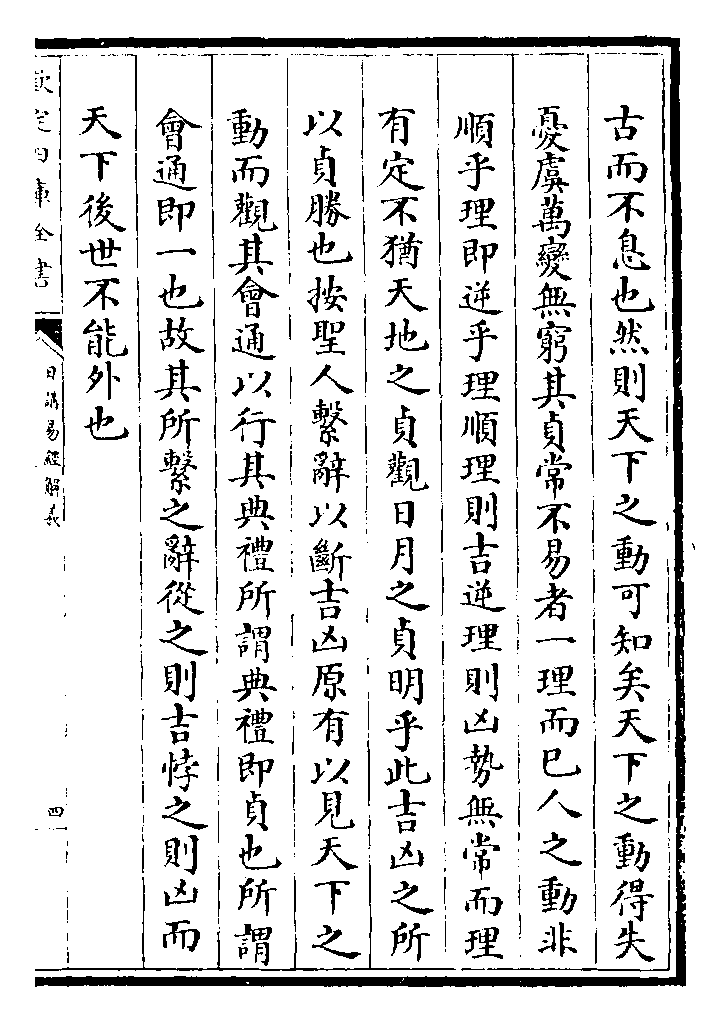 古而不息也然則天下之動可知矣天下之動得失
憂虞萬變無窮其貞常不易者一理而已人之動非
順乎理即逆乎理順理則吉逆理則凶勢無常而理
有定不猶天地之貞觀日月之貞明乎此吉凶之所
以貞勝也按聖人繫辭以斷吉凶原有以見天下之
動而觀其會通以行其典禮所謂典禮即貞也所謂
會通即一也故其所繫之辭從之則吉悖之則凶而
天下後世不能外也
欽定四庫全書
日講易經解義
四